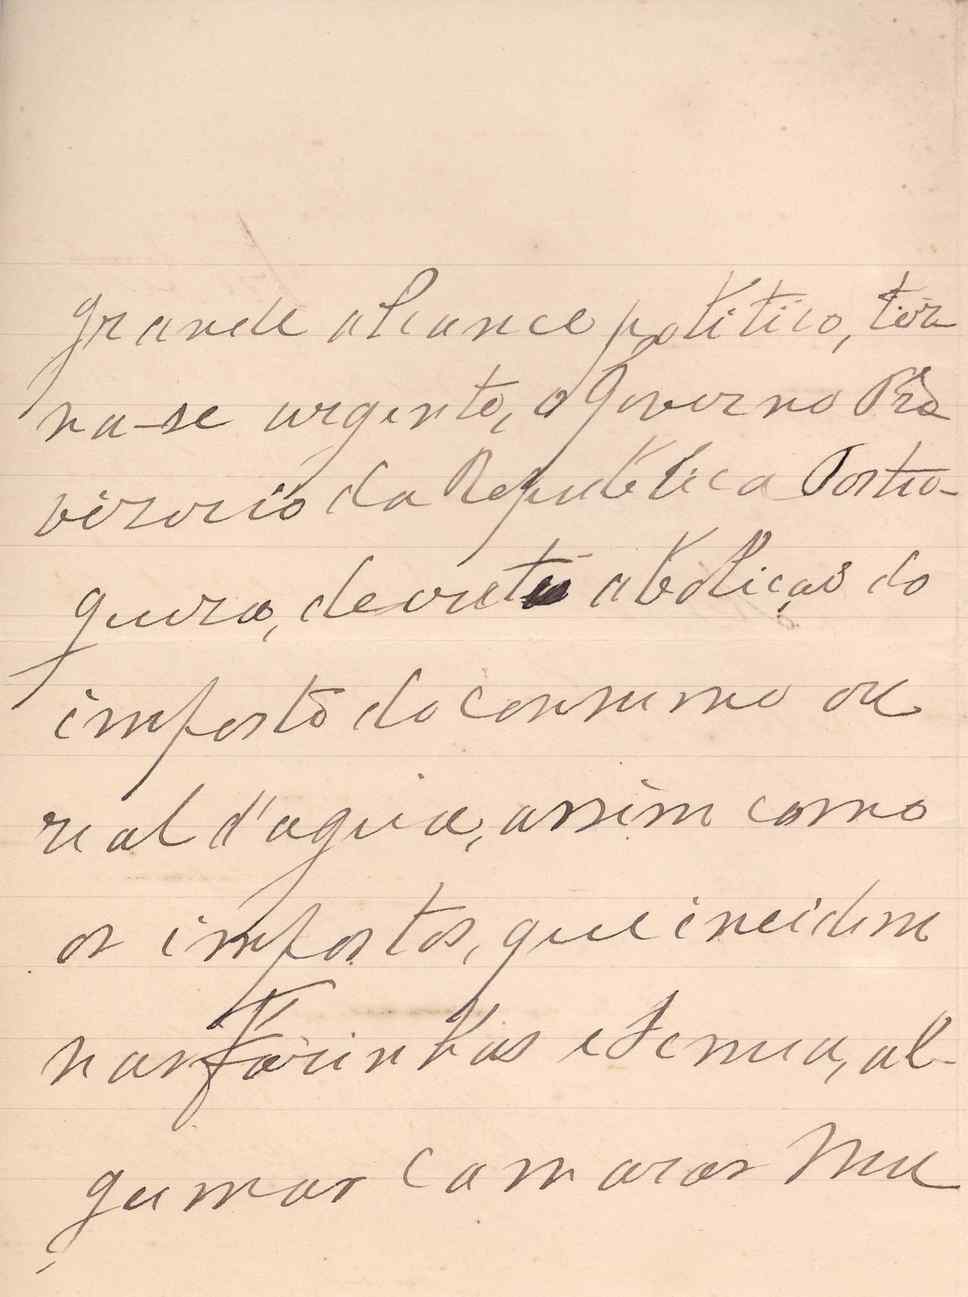 grande alcance politico, tor
na-se urgente, o Governo Pro
visorio da Republica Portu-
gueza, decrete abolição do
imposto do consumo ou
real d'agua, assim como
os impostos, que incidem
nas farinhas e semea, al-
gumas Camaras Mu